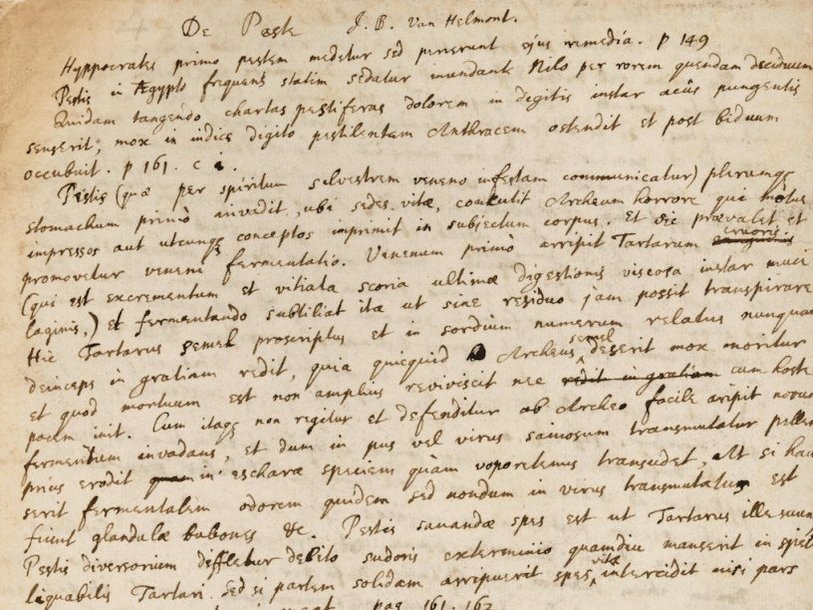 De Peste J. B. Van Helmont.
Hyppocrates primo pestem medetur sed perierunt ejus remedia. p 149
Pestis in Ægypto frequens statim sedatur inundante Nilo per rorem quendam deciduum
Quidam tangendo chartas pestiferas dolorem in digitis instar acûs pungentis
senserit, mox in indice digito pestilentem Anthracem ostendit et post biduum
occubuit. p 161. c
Pestis (quæ per spiritum silvestrem veneno infestam communicatur) plerumqe
stomachum primò invadit, ubi sedes vitæ, concutit Archeum horrore qui motus
impressos aut utcunqe conceptos imprimit in subjectum corpus. Et sic prævalet et
promovetur veneni fermentatio. Venenum primò arripit Tartarum sanguinis cruoris.
(qui est excrementum et vitiata scoria ultimæ digestionis viscosa instar muci
laginis,) et fermentando subtiliat ita ut sine residuo jam possit transpirare
Hic Tartarus semel proscriptus et in sordium numerum relatus nunquam
deinceps in gratiam redit, quia quicquid Archeus semel deserit mox moritur
et quod mortuum est non amplius reviviscit nec redit in gratiam cum hoste
pacem init. Cum itaqe non regitur et defenditur ab Archeo facile aripit novum
fermentum invadens, et dum in pus vel virus saniosum transmutatur pellem
prius erodit quam in escharæ speciem quàm vaporetenus transudet, At si hau
serit fermentalem odorem quidem sed nondum in virus transmutatum est
fiunt glandulæ bubones &c. Pestis sanandæ spes est ut Tartarus ille suum
Pestis diversorium debito sudoris exterminio quamdiu manserit in
liquabilis Tartari. Sed si partem solidam arripuerit spes vitæ intercidit nisi pars
pag 161. 162